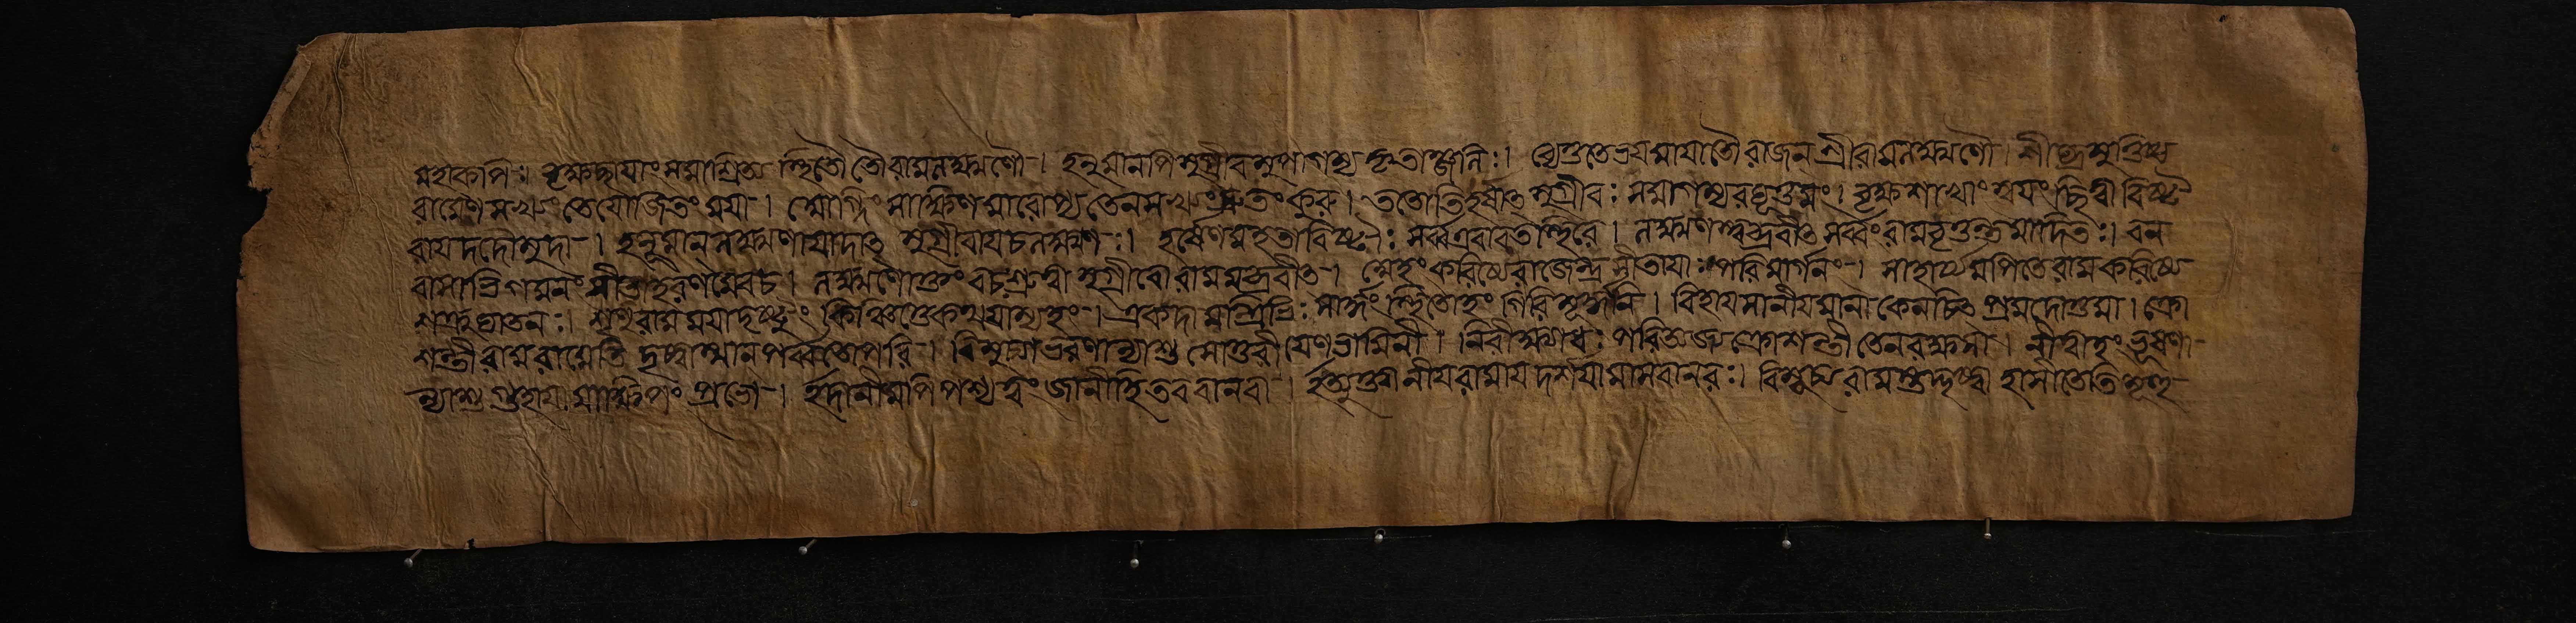 মহাকপি:। বৃক্ষচ্ছায়াং সমাশ্রিত্য স্থিতৌ তৌ রামলক্ষ্মণৌ। হনুমানপি সুগ্রীবমুপাগম্য কৃতাঞ্জলি:। ব্যেতুতেভয়মায়াতৌ রাজন্ শ্রীরামলক্ষ্মণৌ। শীঘ্রমুত্তিষ্ঠ
রামেণ সখ্যং তে যোজিতং ময়া। সোগ্নিং সাক্ষিণমারোপ্য তেন সখ্যং দ্রুতং কুরু। ততোতিহর্ষাৎ সুগ্রীব: সমাগম্য রঘূত্তমং। বৃক্ষশাখাং স্বয়ং চ্ছিত্বা বিষ্ট
রায় দদৌ মুদা। হনূমান্ লক্ষ্মণায়াদাৎ সুগ্রীবায় চ লক্ষ্মণ:। হর্ষেণ মহতাবিষ্টা: সর্ব্ব এবাবতস্থিরে। লক্ষ্মণস্ত্বব্রবীৎ সর্ব্বং রামবৃত্তান্তমাদিত:। বন
বাসাভিগমনং সীতাহরণমেব চ। লক্ষ্মণোক্তং বচ: শ্রুত্বা সুগ্রীবো রামমব্রবীৎ। সোহং করিষ্যে রাজেন্দ্র সীতায়া: পরিমার্গনং। সাহায্যমপি তে রাম করিষ্যে
শত্রুঘাতন:। শৃণু রাম ময়া দৃষ্টং কিঞ্চিত্তে কথয়াম্যহং। একদা মন্ত্রিভি: সার্দ্ধং স্থিতোহং গিরিমূর্দ্ধনি। বিহায়সা নীয়মানা কেনচিৎ প্রমদোত্তমা। ক্রো
শন্তী রাম রামেতি দৃষ্ট্বাস্মান্ পর্ব্বতোপরি। বিমুচ্যাভরণান্যাশু সোত্তরীয়েণ ভামিনী। নিরীক্ষ্যাধ: পরিত্যজ্য ক্রোশন্তী তেন রক্ষসা। নীত্বাহং ভূষণা
ন্যাশু গুহায়ামাক্ষিপং প্রভো। ইদানীমপি পশ্য ত্বং জানীহি তব বা ন বা। ইত্যুক্ত্বানীয় রামায় দর্শয়ামাস বানর:। বিমুচ্য রামস্তদ্দৃষ্ট্বা হাসীতেতি মুহু